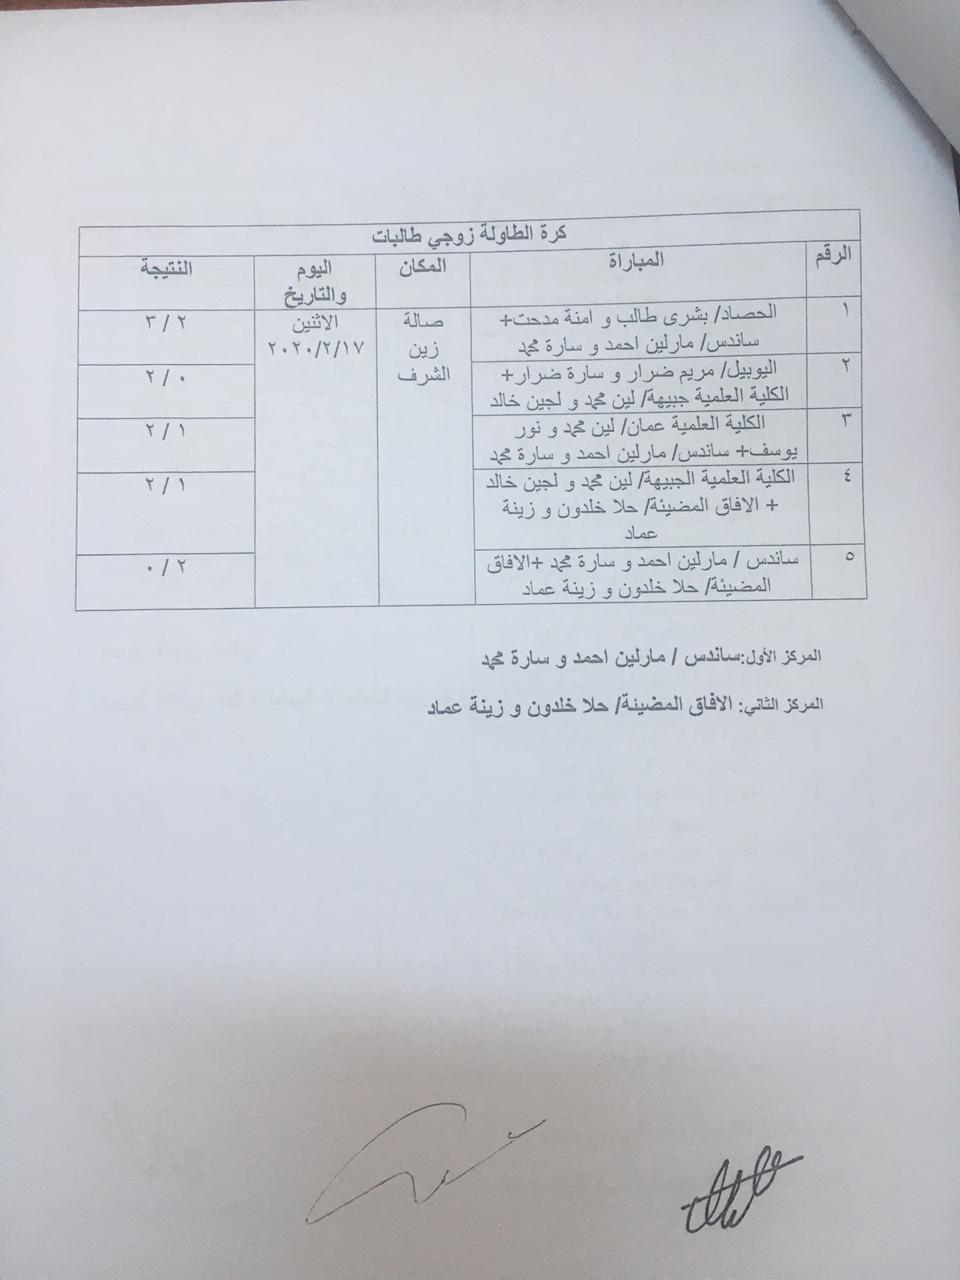 كرة الطاولة زوجي طالبات
الرقم المباراة المكان اليوم والتاريخ النتيجة
١ الحصاد/ بشرى طالب و امنة مدحت+ صالة الاثنين ٢ / ٣
ساندس/ مارلين احمد و سارة محمد زين ٢٠٢٠/٢/١٧
٢ اليوبيل/ مريم ضرار و سارة ضرار+ الشرف ٠ / ٢
الكلية العلمية جبيهة/ لين محمد و لجين خالد
٣ الكلية العلمية عمان/ لين محمد و نور ١ / ٢
يوسف+ ساندس/ مارلين احمد و سارة محمد
٤ الكلية العلمية الجبيهة/ لين محمد و لجين خالد ١ / ٢
+ الافاق المضيئة/ حلا خلدون و زينة
عماد
٥ ساندس / مارلين احمد و سارة محمد +الافاق ٢ / ٠
المضيئة/ حلا خلدون و زينة عماد
المركز الأول:ساندس / مارلين احمد و سارة محمد
المركز الثاني: الافاق المضيئة/ حلا خلدون و زينة عماد